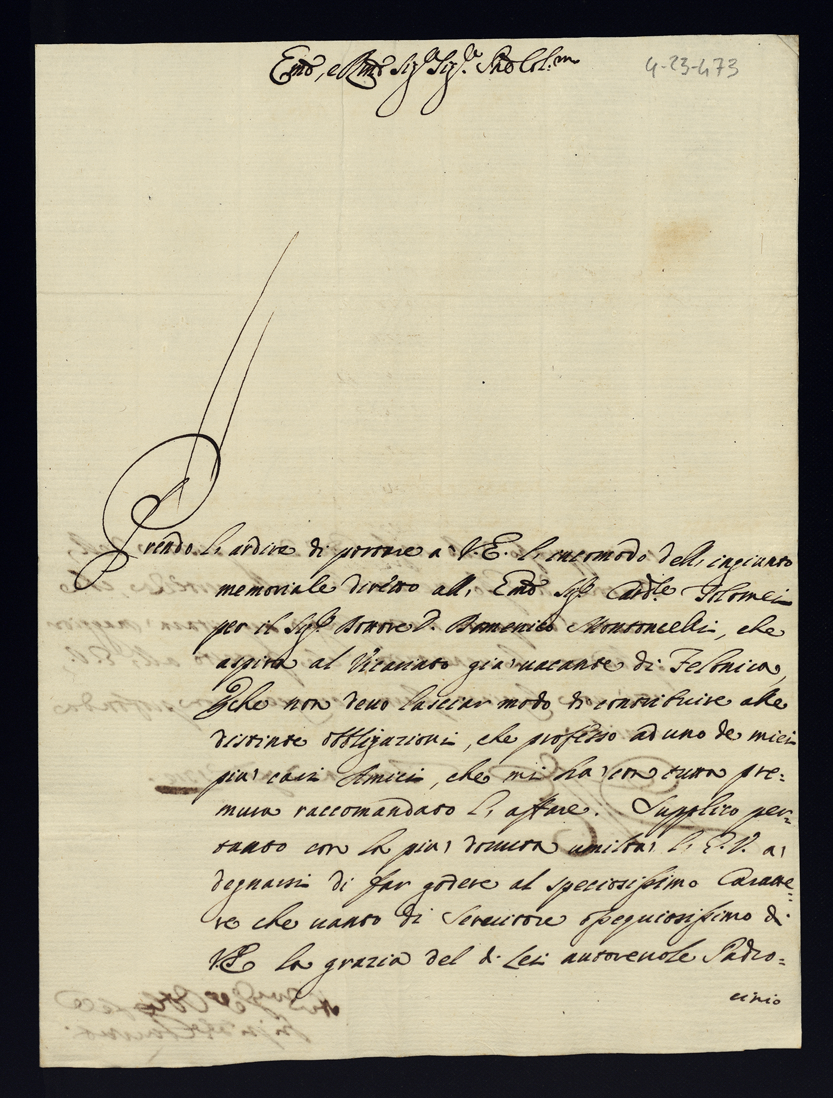 Emo, e Rmo Sig.r Sig.r Pne Col.mo
4-23-473
Prendo l'ardire di portare a V.E. l'incomodo dell'ingiunto
memoriale diretto all' Emo Sig.r Card.le Tolomei
per il Sig.r Dottore D. Domenico Montoncelli, che
aspira al Vicariato già vacante di Felonica,
Perche non devo lasciar modo di contribuire alle
distinte obbligazioni, che professo ad uno de miei
più cari Amici, che mi ha con tutta pre=
mura raccomandato l'affare. Supplico per=
tanto con la più dovuta umiltà l'E.V. a
degnarsi di far godere al speciosissimo Caratte=
re che vanto di Servitore ossequiosissimo di
V.E. la grazia del di Lei autorevole Padro=
cinio